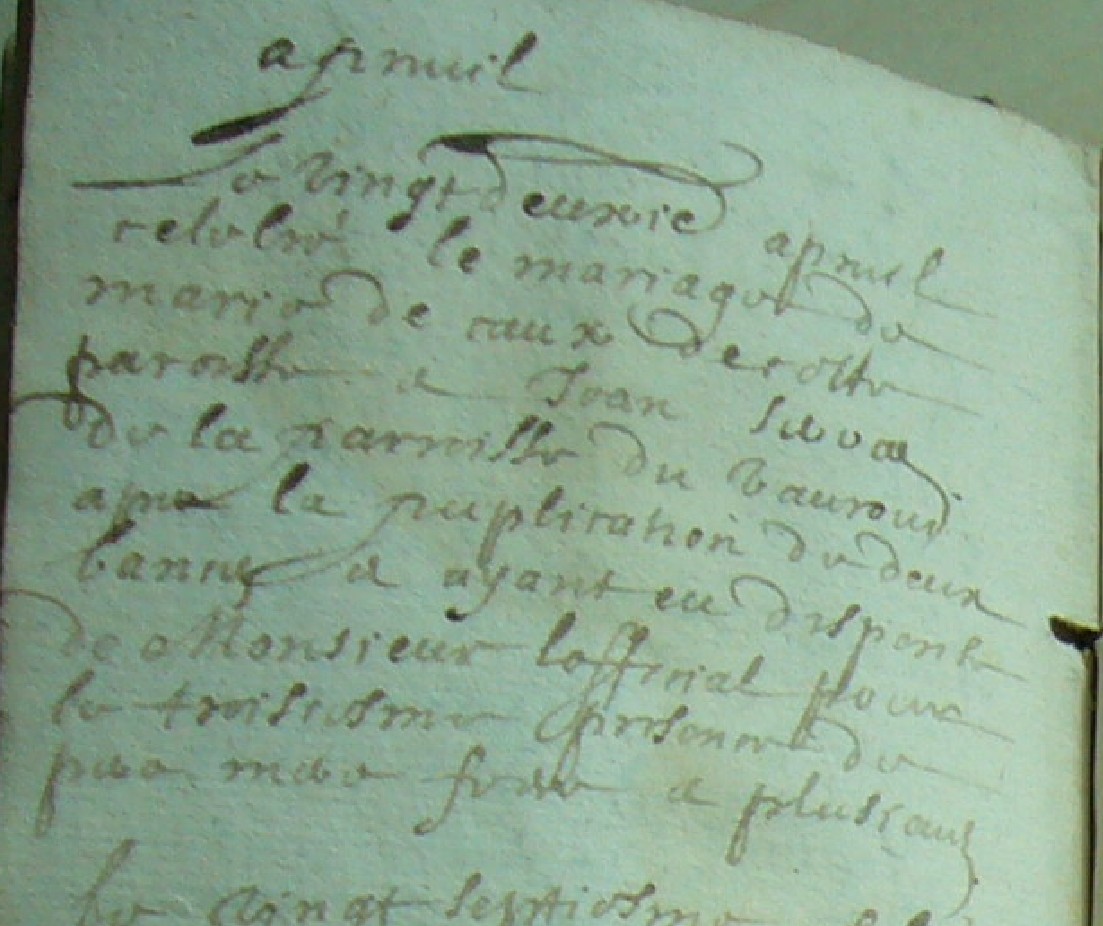 apruil
Le vingt deuxie apruil
celebré le mariage de
marie de caux de cette
paroisse a Jean
de la paroisse du vauroui
apre la puplication de deux
banne a ayant eu dispence
de Monsieur lofficial pour
le troisiesme presence de
frere a plusieurs
Le vingt septiesme